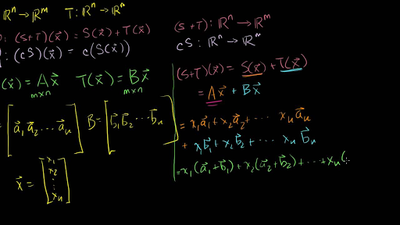 ℝⁿ → ℝᵐ    T: ℝⁿ → ℝᵐ
: (S+T)(x⃗) = S(x⃗) + T(x⃗)
: (cS)(x⃗) = c(S(x⃗))
(x⃗) = Ax⃗    T(x⃗) = Bx⃗
m×n    m×n
= [a⃗₁ a⃗₂ ... a⃗ₙ]    B = [b⃗₁ b⃗₂ ... b⃗ₙ]
x⃗ = [x₁ x₂ ⋮ xₙ]
(S+T): ℝⁿ → ℝᵐ
cS: ℝⁿ → ℝᵐ
(S+T)(x⃗) = S(x⃗) + T(x⃗)
= Ax⃗ + Bx⃗
= x₁a⃗₁ + x₂a⃗₂ + ... xₙa⃗ₙ
+ x₁b⃗₁ + x₂b⃗₂ + ... xₙb⃗ₙ
= x₁(a⃗₁+b⃗₁) + x₂(a⃗₂+b⃗₂) + ... + xₙ(